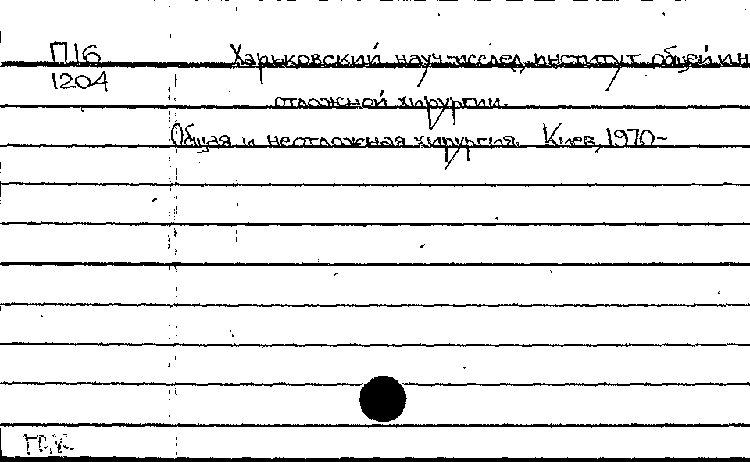 П16 Харьковский науч-исслед. институт общей и н
1204
отложной хирургии.
Общая и неотложная хирургия. Киев, 1970-